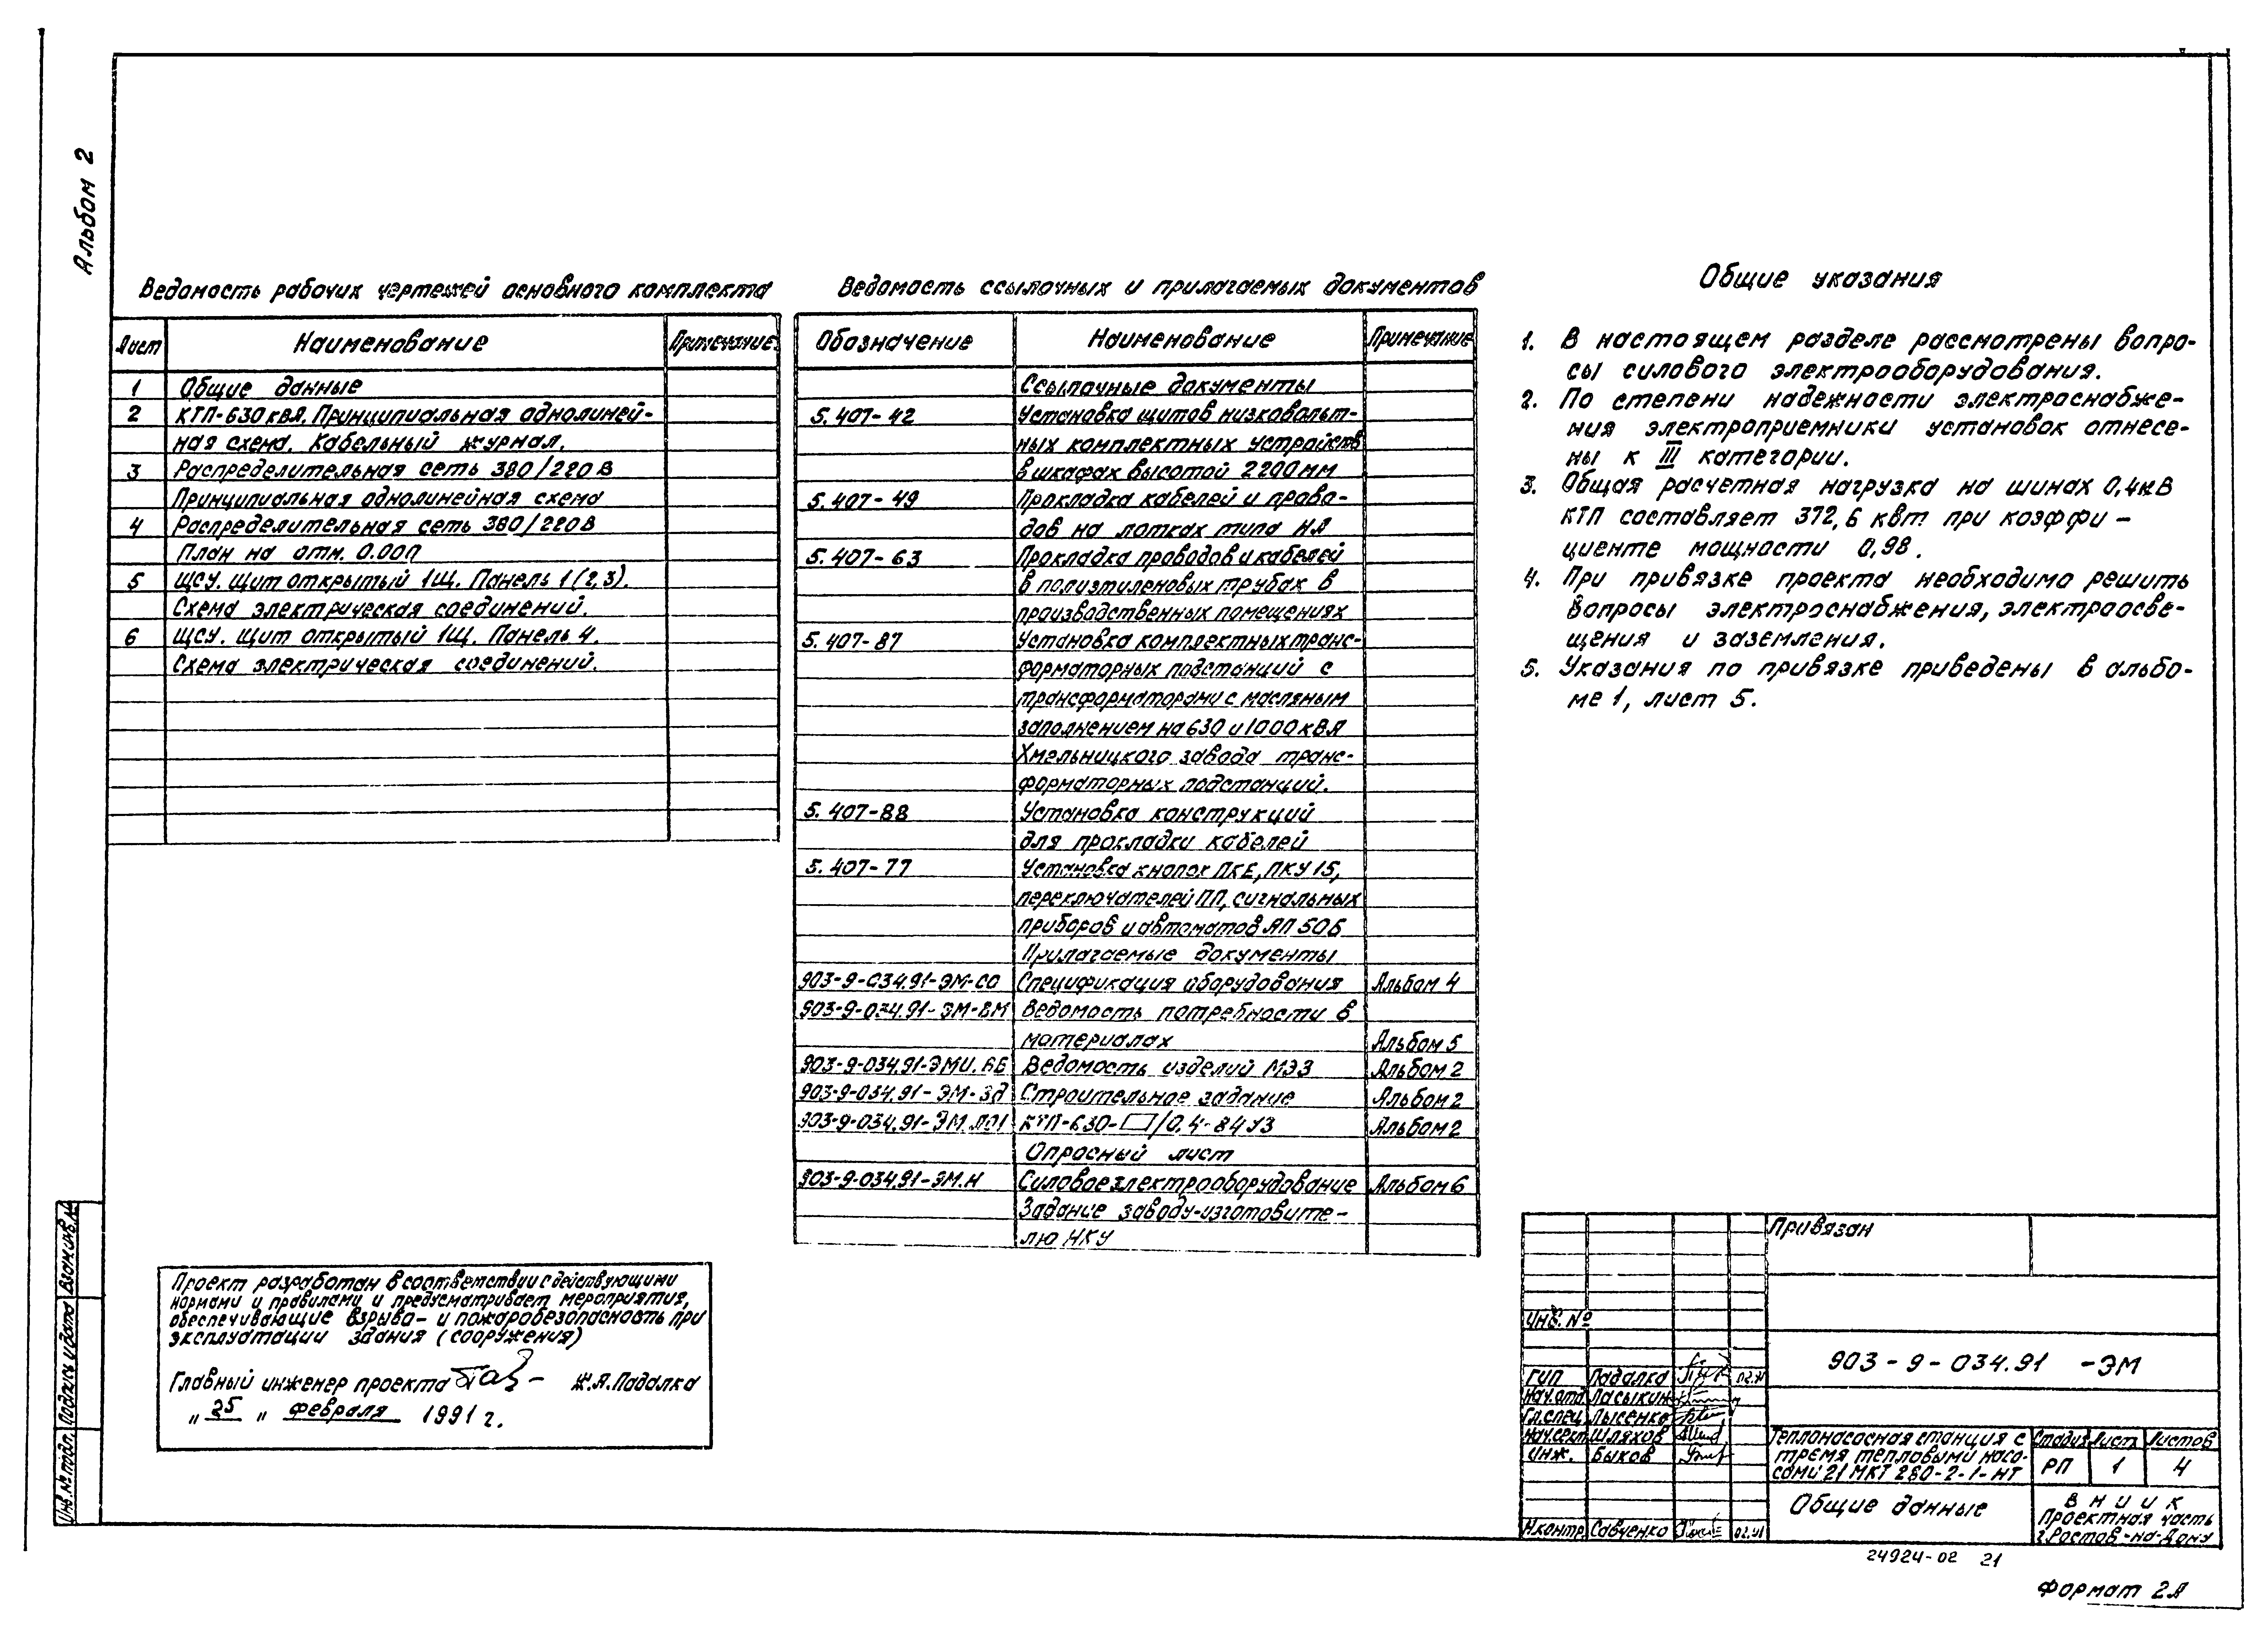 Альбом 2
Ведомость рабочих чертежей основного комплекта
Лист Наименование Примечание
1 Общие данные
2 КТП-630 кВА. Принципиальная однолиней-
ная схема. Кабельный журнал.
3 Распределительная сеть 380/220 В
Принципиальная однолинейная схема
4 Распределительная сеть 380/220 В
План на отм. 0.000
5 ЩСУ. Щит открытый 1Щ. Панель 1 (2,3).
Схема электрическая соединений.
6 ЩСУ. Щит открытый 1Щ. Панель 4.
Схема электрическая соединений.
Ведомость ссылочных и прилагаемых документов
Обозначение Наименование Примечание
Ссылочные документы
5.407-42 Установка щитов низковольт-
ных комплектных устройств
в шкафах высотой 2200 мм
5.407-49 Прокладка кабелей и прово-
дов на лотках типа НЛ
5.407-63 Прокладка проводов и кабелей
в полиэтиленовых трубах в
производственных помещениях
5.407-87 Установка комплектных транс-
форматорных подстанций с
трансформаторами с масляным
заполнением на 630 и 1000 кВА
Хмельницкого завода транс-
форматорных подстанций.
5.407-88 Установка конструкций
для прокладки кабелей
5.407-77 Установка кнопок ПКЕ, ПКУ15,
переключателей ПП, сигнальных
приборов и автоматов АП 50Б
Прилагаемые документы
903-9-034.91-ЭМ-СО Спецификация оборудования Альбом 4
903-9-034.91-ЭМ-ВМ Ведомость потребности в
материалах Альбом 5
903-9-034.91-ЭМИ.ВБ Ведомость изделий МЭЗ Альбом 2
903-9-034.91-ЭМ-ЗД Строительное задание Альбом 2
903-9-034.91-ЭМ.Л01 КТП-630-▭/0,4-84У3 Альбом 2
Опросный лист
903-9-034.91-ЭМ.Н Силовое электрооборудование Альбом 6
Задание заводу-изготовите-
лю НКУ
Общие указания
1. В настоящем разделе рассмотрены вопро-
сы силового электрооборудования.
2. По степени надежности электроснабже-
ния электроприемники установок отнесе-
ны к III категории.
3. Общая расчетная нагрузка на шинах 0,4кВ
КТП составляет 372,6 квт при коэффи-
циенте мощности 0,98.
4. При привязке проекта необходимо решить
вопросы электроснабжения, электроосве-
щения и заземления.
5. Указания по привязке приведены в альбо-
ме 1, лист 5.
Проект разработан в соответствии с действующими
нормами и правилами и предусматривает мероприятия,
обеспечивающие взрыво- и пожаробезопасность при
эксплуатации здания (сооружения)
Главный инженер проекта Ж.А.Падалка
„ 25 „ февраля 1991 г.
Инв. № подл. Подпись и дата Взам. инв. №
Привязан
Инв. №
903-9-034.91 -ЭМ
ГИП Падалка 02.91
Нач. отд. Ласыкин
Гл. спец. Лысенко
Нач. сект. Шляхов
Инж. Быков
Н.контр. Савченко 02.91
Теплонасосная станция с
тремя тепловыми насо-
сами 21 МКТ 280-2-1-НТ
Стадия Лист Листов
РП 1 4
Общие данные
ВНИИК
Проектная часть
г.Ростов-на-Дону
24924-02 21
Формат 2А